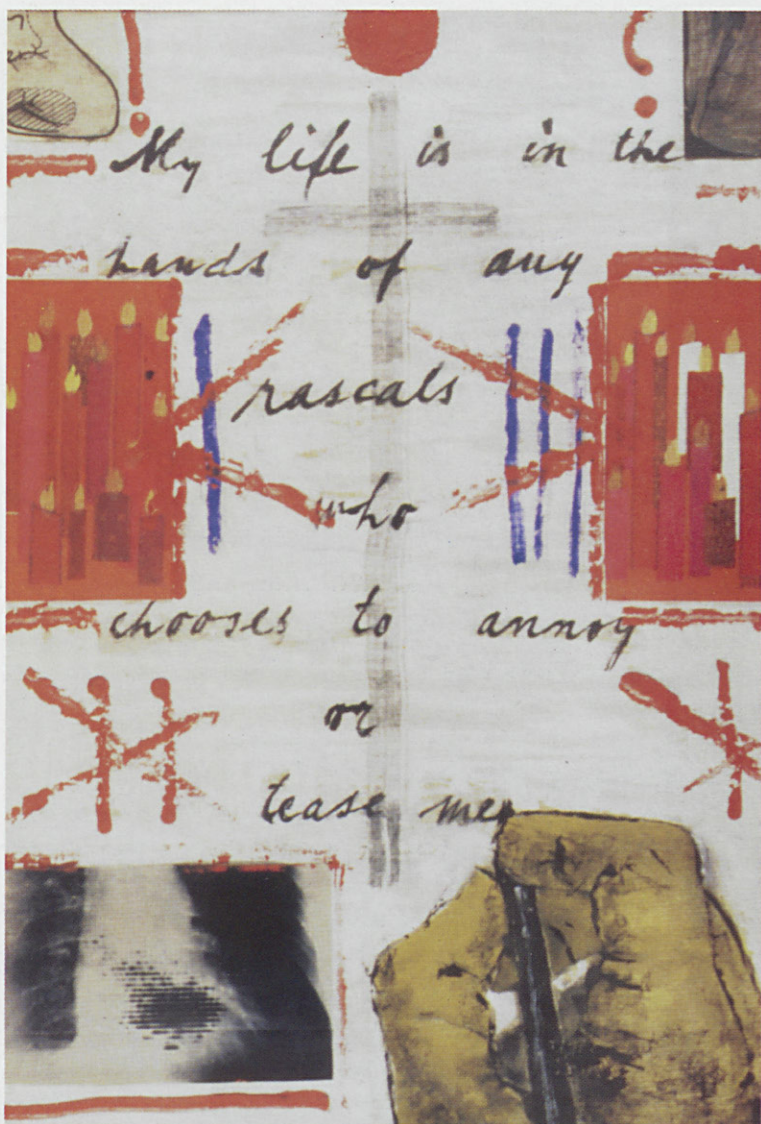 My life is in the
hands of any
rascals
who
chooses to annoy
or
tease me,